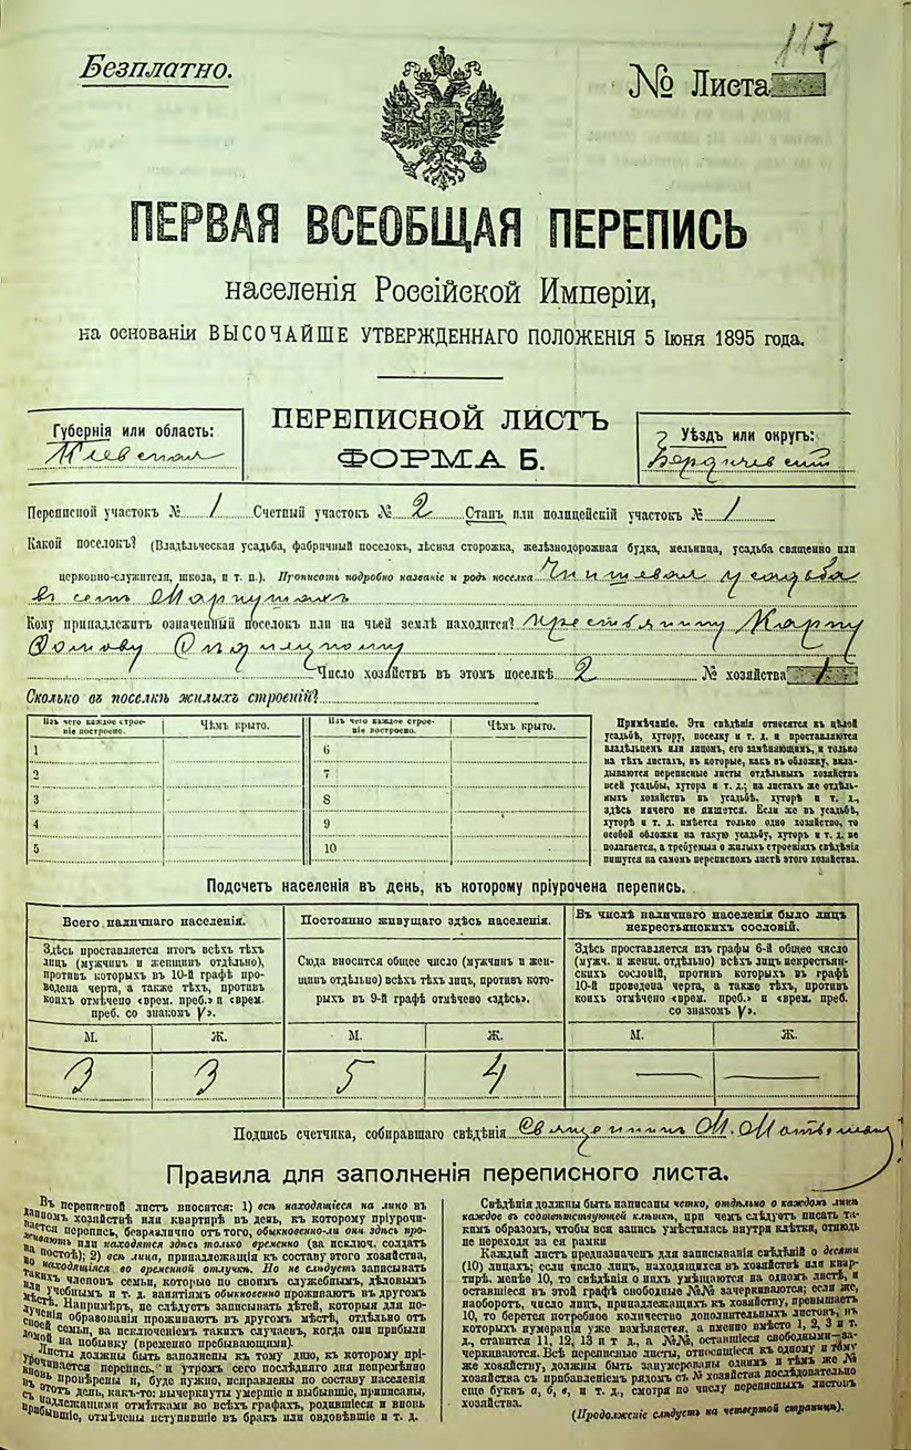 117
Безплатно.
№ Листа
ПЕРВАЯ ВСЕОБЩАЯ ПЕРЕПИСЬ
населенія Россійской Имперіи,
на основаніи ВЫСОЧАЙШЕ УТВЕРЖДЕННАГО ПОЛОЖЕНІЯ 5 Іюня 1895 года.
Губернія или область:
Кіевская
ПЕРЕПИСНОЙ ЛИСТЪ
ФОРМА Б.
Уѣздъ или округъ:
Бердичевскій
Переписной участокъ № 1 Счетный участокъ № 2 Станъ или полицейскій участокъ № 1
Какой поселокъ? (Владѣльческая усадьба, фабричный поселокъ, лѣсная сторожка, желѣзнодорожная будка, мельница, усадьба священно или
церковно-служителя, школа, и т. п.). Прописать подробно названіе и родъ поселка Чиншевая усадьба
въ селѣ
Кому принадлежитъ означенный поселокъ или на чьей землѣ находится? крестьянину Карпу
Число хозяйствъ въ этомъ поселкѣ 2 № хозяйства 1
Сколько въ поселкѣ жилыхъ строеній?
Изъ чего каждое строеніе построено. Чѣмъ крыто. Изъ чего каждое строеніе построено. Чѣмъ крыто.
1 6
2 7
3 8
4 9
5 10
Примѣчаніе. Эти свѣдѣнія относятся къ цѣлой
усадьбѣ, хутору, поселку и т. д. и проставляются
владѣльцемъ или лицомъ, его замѣняющимъ, и только
на тѣхъ листахъ, въ которые, какъ въ обложку, вкла-
дываются переписные листы отдѣльныхъ хозяйствъ
всей усадьбы, хутора и т. д.; на листахъ же отдѣль-
ныхъ хозяйствъ въ усадьбѣ, хуторѣ и т. д.,
здѣсь ничего не пишется. Если же въ усадьбѣ,
хуторѣ и т. д. имѣется только одно хозяйство, то
особой обложки на такую усадьбу, хуторъ и т. д. не
полагается, а требуемыя о жилыхъ строеніяхъ свѣдѣнія
пишутся на самомъ переписномъ листѣ этого хозяйства.
Подсчетъ населенія въ день, къ которому пріурочена перепись.
Всего наличнаго населенія.
Здѣсь проставляется итогъ всѣхъ тѣхъ
лицъ (мужчинъ и женщинъ отдѣльно),
противъ которыхъ въ 10-й графѣ про-
ведена черта, а также тѣхъ, противъ
коихъ отмѣчено «врем. преб.» и «врем.
преб. со знакомъ V».
М. Ж.
3 3
Постоянно живущаго здѣсь населенія.
Сюда вносится общее число (мужчинъ и жен-
щинъ отдѣльно) всѣхъ тѣхъ лицъ, противъ кото-
рыхъ въ 9-й графѣ отмѣчено «здѣсь».
М. Ж.
5 4
Въ числѣ наличнаго населенія было лицъ
некрестьянскихъ сословій.
Здѣсь проставляется изъ графы 6-й общее число
(мужч. и женщ. отдѣльно) всѣхъ лицъ некрестьян-
скихъ сословій, противъ которыхъ въ графѣ
10-й проведена черта, а также тѣхъ, противъ
коихъ отмѣчено «врем. преб.» и «врем. преб.
со знакомъ V».
М. Ж.
— —
Подпись счетчика, собиравшаго свѣдѣнія Священникъ М.
Правила для заполненія переписного листа.
Въ переписной листъ вносятся: 1) всѣ находящіеся на лицо въ
данномъ хозяйствѣ или квартирѣ въ день, къ которому пріурочи-
вается перепись, безразлично отъ того, обыкновенно-ли они здѣсь про-
живаютъ или находятся здѣсь только временно (за исключ. солдатъ
на постоѣ); 2) всѣ лица, принадлежащія къ составу этого хозяйства,
но находящіяся во временной отлучкѣ. Но не слѣдуетъ записывать
такихъ членовъ семьи, которые по своимъ служебнымъ, дѣловымъ
или учебнымъ и т. д. занятіямъ обыкновенно проживаютъ въ другомъ
мѣстѣ. Напримѣръ, не слѣдуетъ записывать дѣтей, которыя для по-
лученія образованія проживаютъ въ другомъ мѣстѣ, отдѣльно отъ
своей семьи, за исключеніемъ такихъ случаевъ, когда они прибыли
домой на побывку (временно пребывающими).
Листы должны быть заполнены къ тому дню, къ которому прі-
урочивается перепись, и утромъ сего послѣдняго дня непремѣнно
вновь провѣрены и, буде нужно, исправлены по составу населенія
въ этотъ день, какъ-то: вычеркнуты умершіе и выбывшіе, приписаны,
съ надлежащими отмѣтками во всѣхъ графахъ, родившіеся и вновь
прибывшіе, отмѣчены вступившіе въ бракъ или овдовѣвшіе и т. д.
Свѣдѣнія должны быть написаны четко, отдѣльно о каждомъ лицѣ
каждое въ соотвѣтствующей клѣткѣ, при чемъ слѣдуетъ писать та-
кимъ образомъ, чтобы вся запись умѣстилась внутри клѣтки, отнюдь
не переходя за ея рамки
Каждый листъ предназначенъ для записыванія свѣдѣній о десяти
(10) лицахъ; если число лицъ, находящихся въ хозяйствѣ или квар-
тирѣ, менѣе 10, то свѣдѣнія о нихъ умѣщаются на одномъ листѣ, и
оставшіеся въ этой графѣ свободные №№ зачеркиваются; если же,
наоборотъ, число лицъ, принадлежащихъ къ хозяйству, превышаетъ
10, то берется потребное количество дополнительныхъ листовъ, въ
которыхъ нумерація уже измѣняется, а именно вмѣсто 1, 2, 3 и т.
д., ставится 11, 12, 13 и т д., а №№, оставшіеся свободными—за-
черкиваются. Всѣ переписные листы, относящіеся къ одному и тому
же хозяйству, должны быть занумерованы однимъ и тѣмъ же №
хозяйства съ прибавленіемъ рядомъ съ № хозяйства послѣдовательно
еще буквъ а, б, в, и т. д., смотря по числу переписныхъ листовъ
хозяйства.
(Продолженіе слѣдуетъ на четвертой страницѣ).